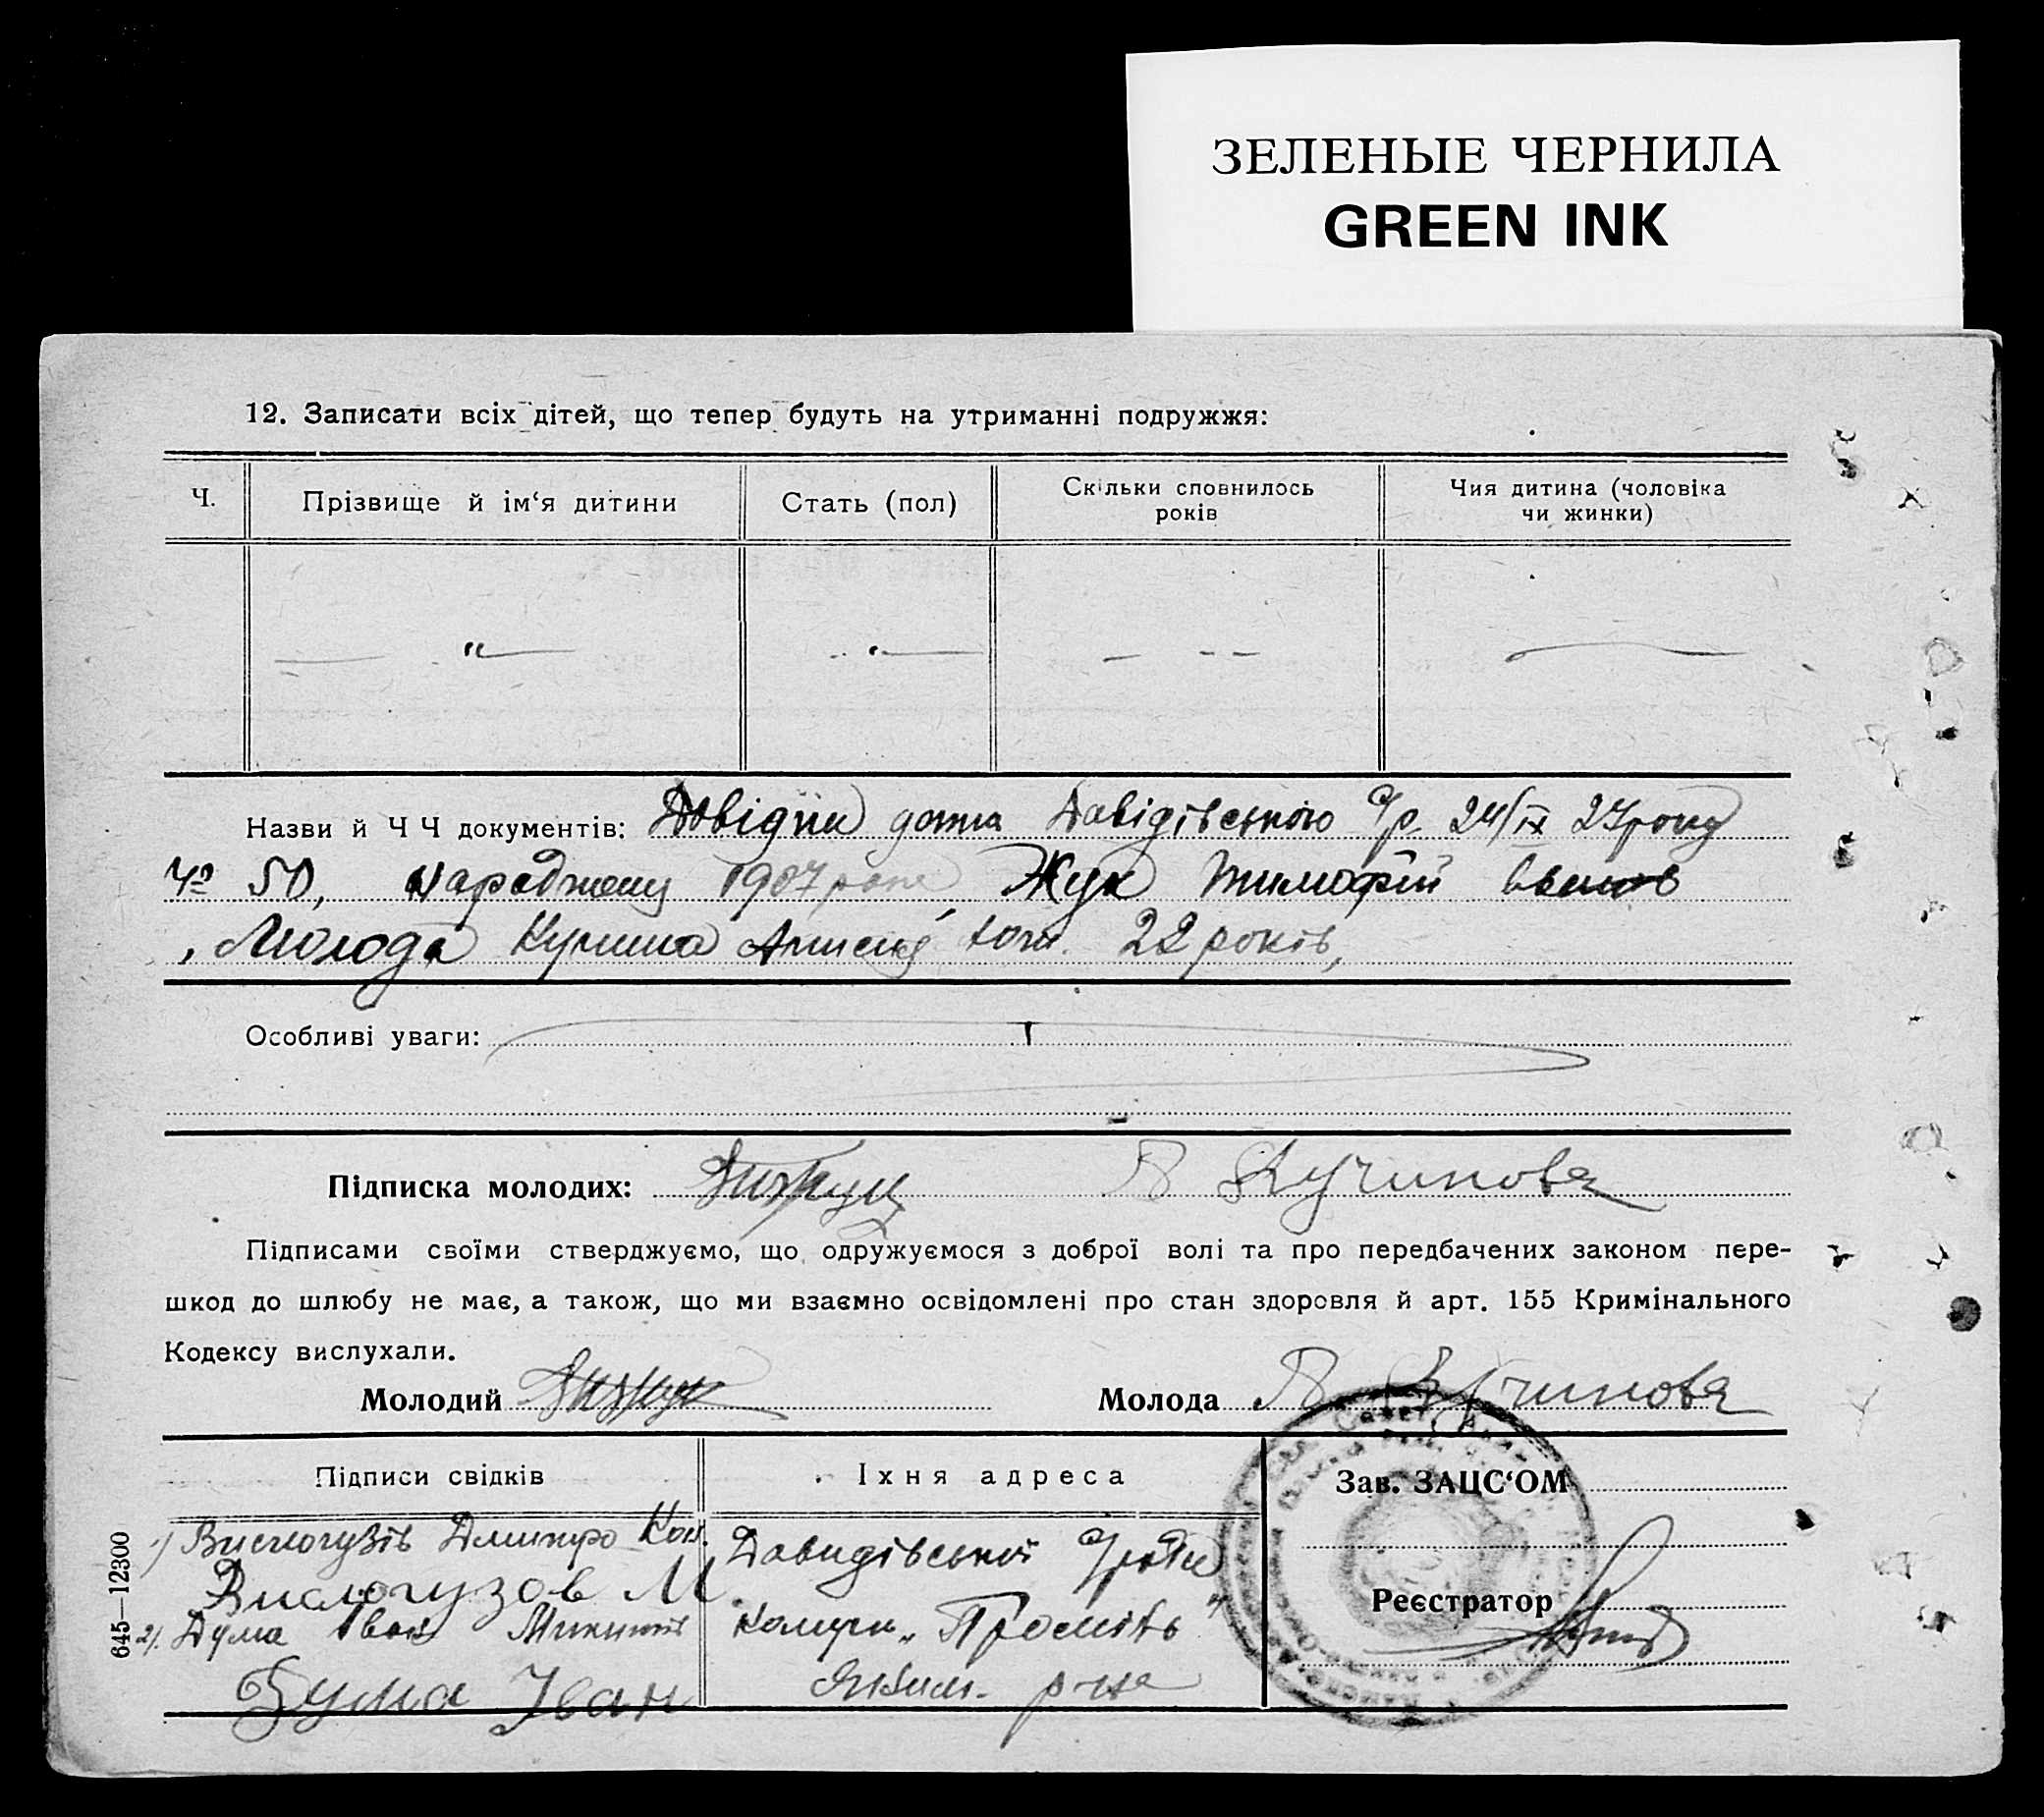 ЗЕЛЕНЫЕ ЧЕРНИЛА
GREEN INK
12. Записати всіх дітей, що тепер будуть на утриманні подружжя:
Ч.
Прізвище й ім‘я дитини
Стать (пол)
Скільки сповнилось
років
Чия дитина (чоловіка
чи жинки)
Назви й Ч Ч документів: Довідки дана Давідівською с/р 24/ІХ 27 року
Чо 50, 1907 Жук Тимофій
, Молода 22 років,
Особливі уваги:
Підписка молодих: Кучинова
Підписами своїми стверджуємо, що одружуємося з доброї волі та про передбачених законом пере-
шкод до шлюбу не має, а також, що ми взаємно освідомлені про стан здоровля й арт. 155 Кримінального
Кодексу вислухали.
Молодий
Молода Кучинова
Підписи свідків
Їхня адреса
Зав. ЗАЦС‘ОМ
1) Вислогузів Дмитро Давидівської с/ради
Вислогузов М
2). Дума Іван Микит комуни „Промінь"
Дума Іван Яким. р-на
Реєстратор
645—12300